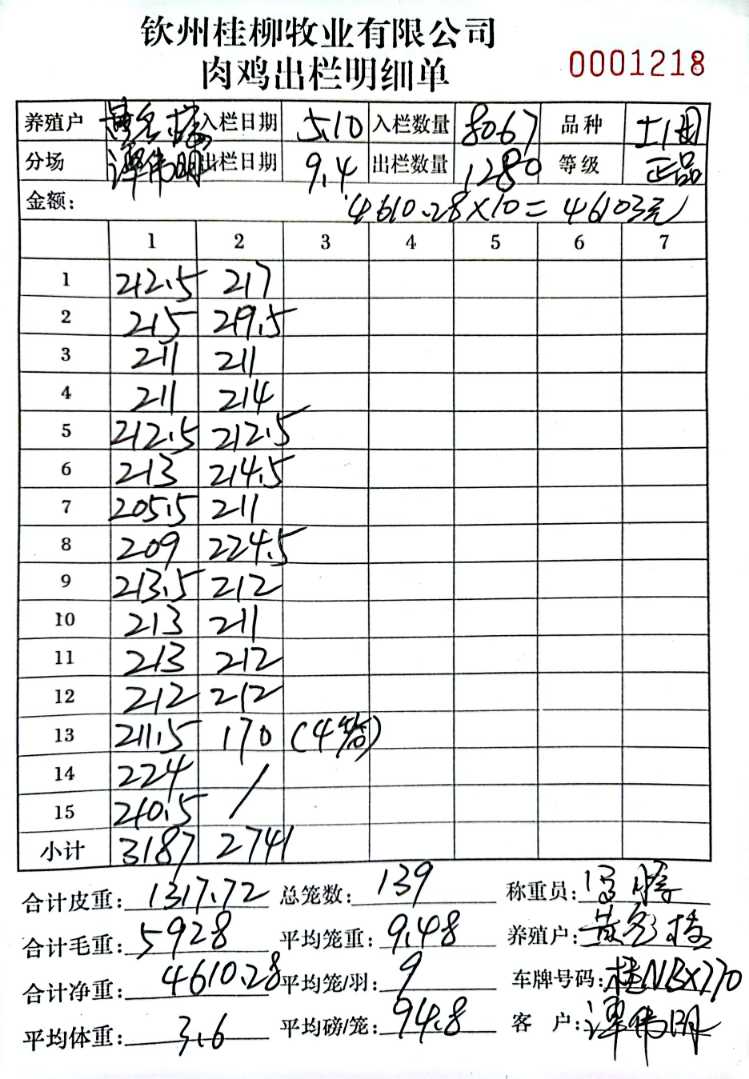 钦州桂柳牧业有限公司
肉鸡出栏明细单 0001218
养殖户 入栏日期 5.10 入栏数量 8067 品种
分场 谭伟明 出栏日期 9.4 出栏数量 1280 等级 正品
金额: 4610.28×10=46103元
1 2 3 4 5 6 7
1 212.5 217
2 215 219.5
3 211 211
4 211 214
5 212.5 212.5
6 213 214.5
7 205.5 211
8 209 224.5
9 213.5 212
10 213 211
11 213 212
12 212 212
13 211.5 170 (4笼)
14 224 /
15 210.5 /
小计 3187 2741
合计皮重: 1317.72 总笼数: 139 称重员:
合计毛重: 5928 平均笼重: 9.48 养殖户:
合计净重: 4610.28 平均笼/羽: 9 车牌号码: 桂NBX770
平均体重: 3.6 平均磅/笼: 94.8 客户: 谭伟明